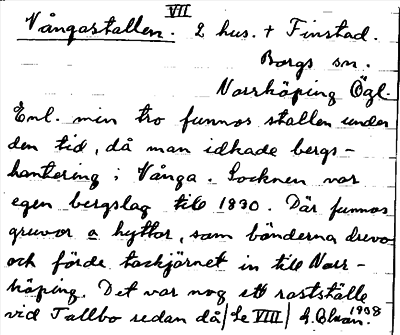 VII
Vångastallen. 2 hus. + Finstad.
Borgs sn.
Norrköping Ögl.
Enl. min tro funnos stallen under
den tid, då man idkade bergs-
hantering i Vånga. Socknen var
egen bergslag till 1830. Där funnos
gruvor o hyttor, som bönderna drevo
och förde tackjärnet in till Norr-
köping. Det var nog ett rastställe
vid Tallbo redan då / Se VIII / G.
1938